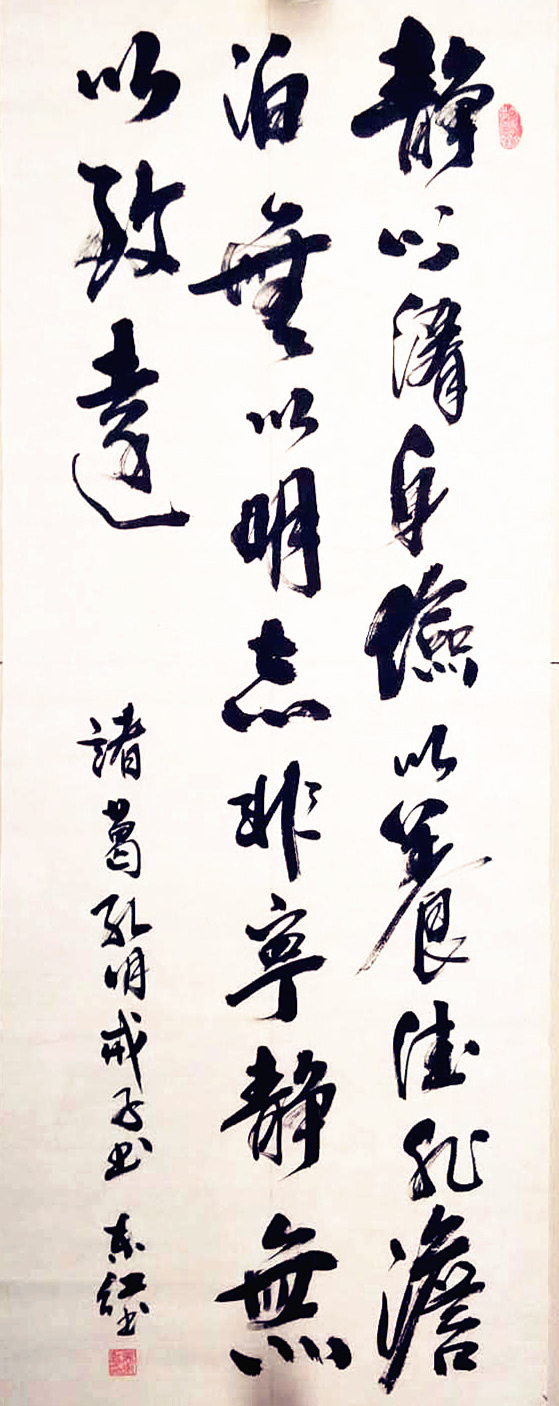 靜以脩身儉以養德非澹
泊無以明志非寧靜無
以致遠
諸葛孔明戒子书